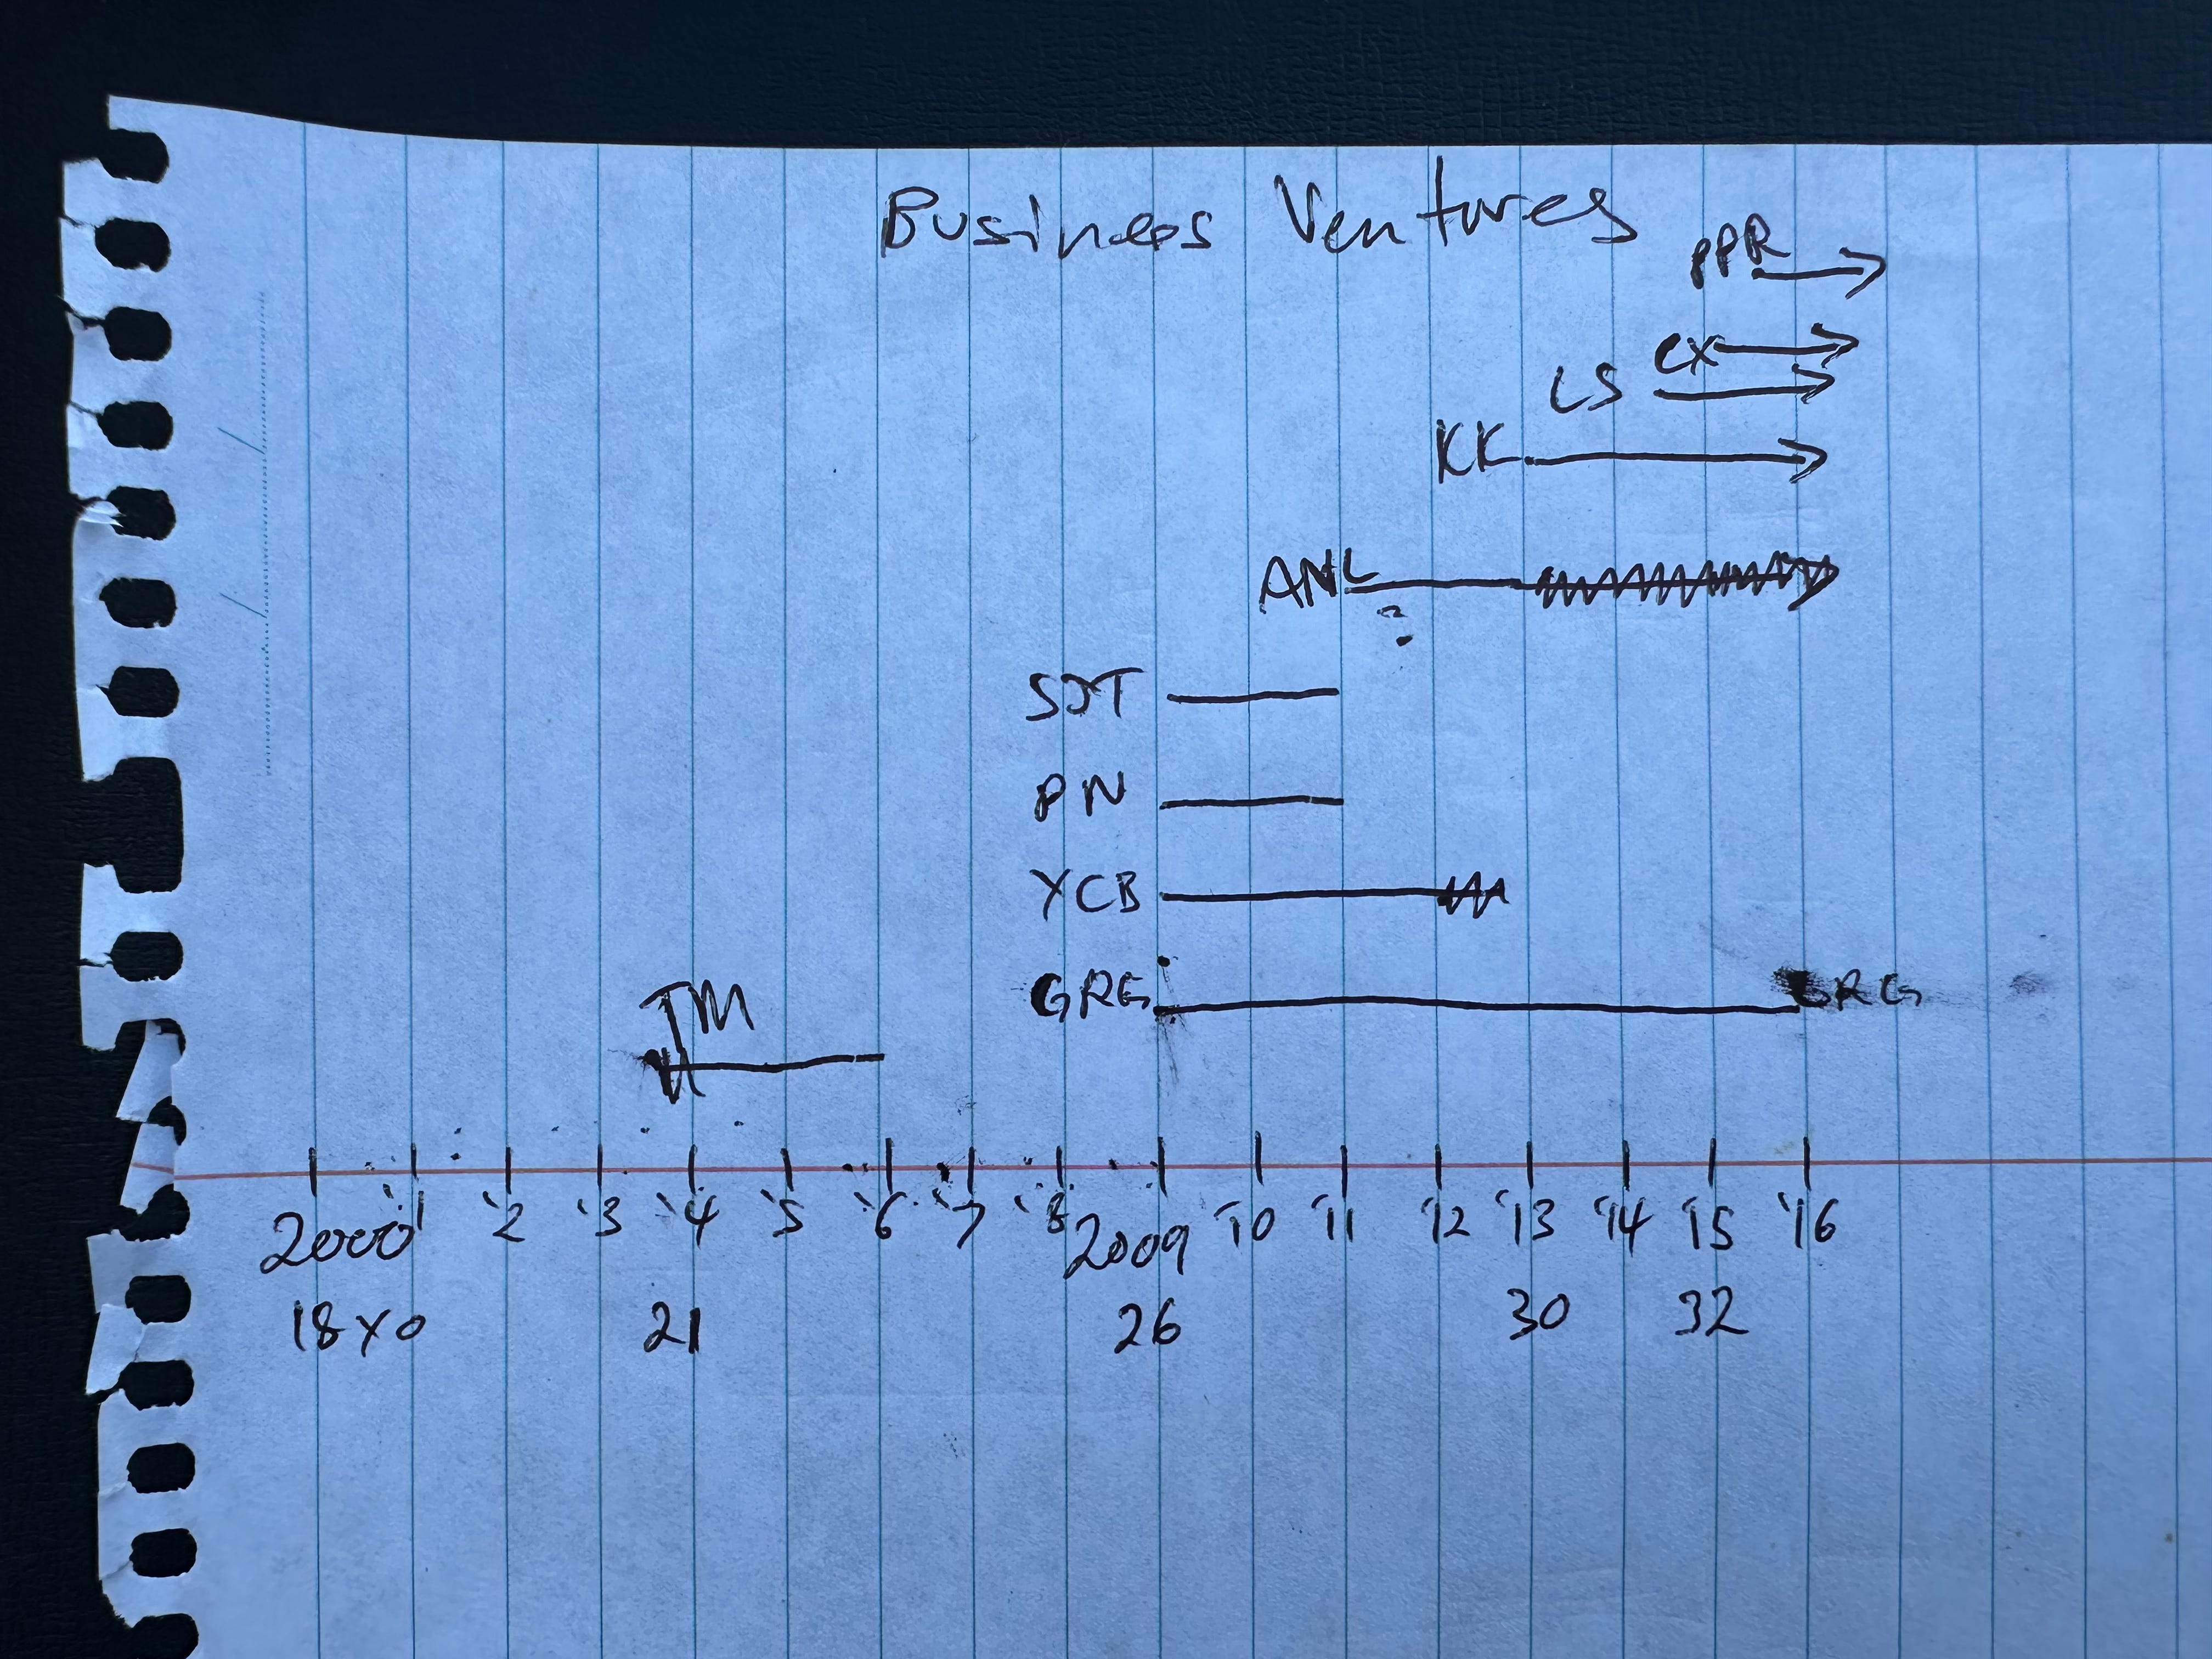 Business Ventures
PPR
CX
LS
KK
ANL
?
SJT
PN
YCB
GRG GRG
TM
2000 '1 '2 '3 '4 '5 '6 '7 '8 2009 '10 '11 '12 '13 '14 '15 '16
18 yo 21 26 30 32